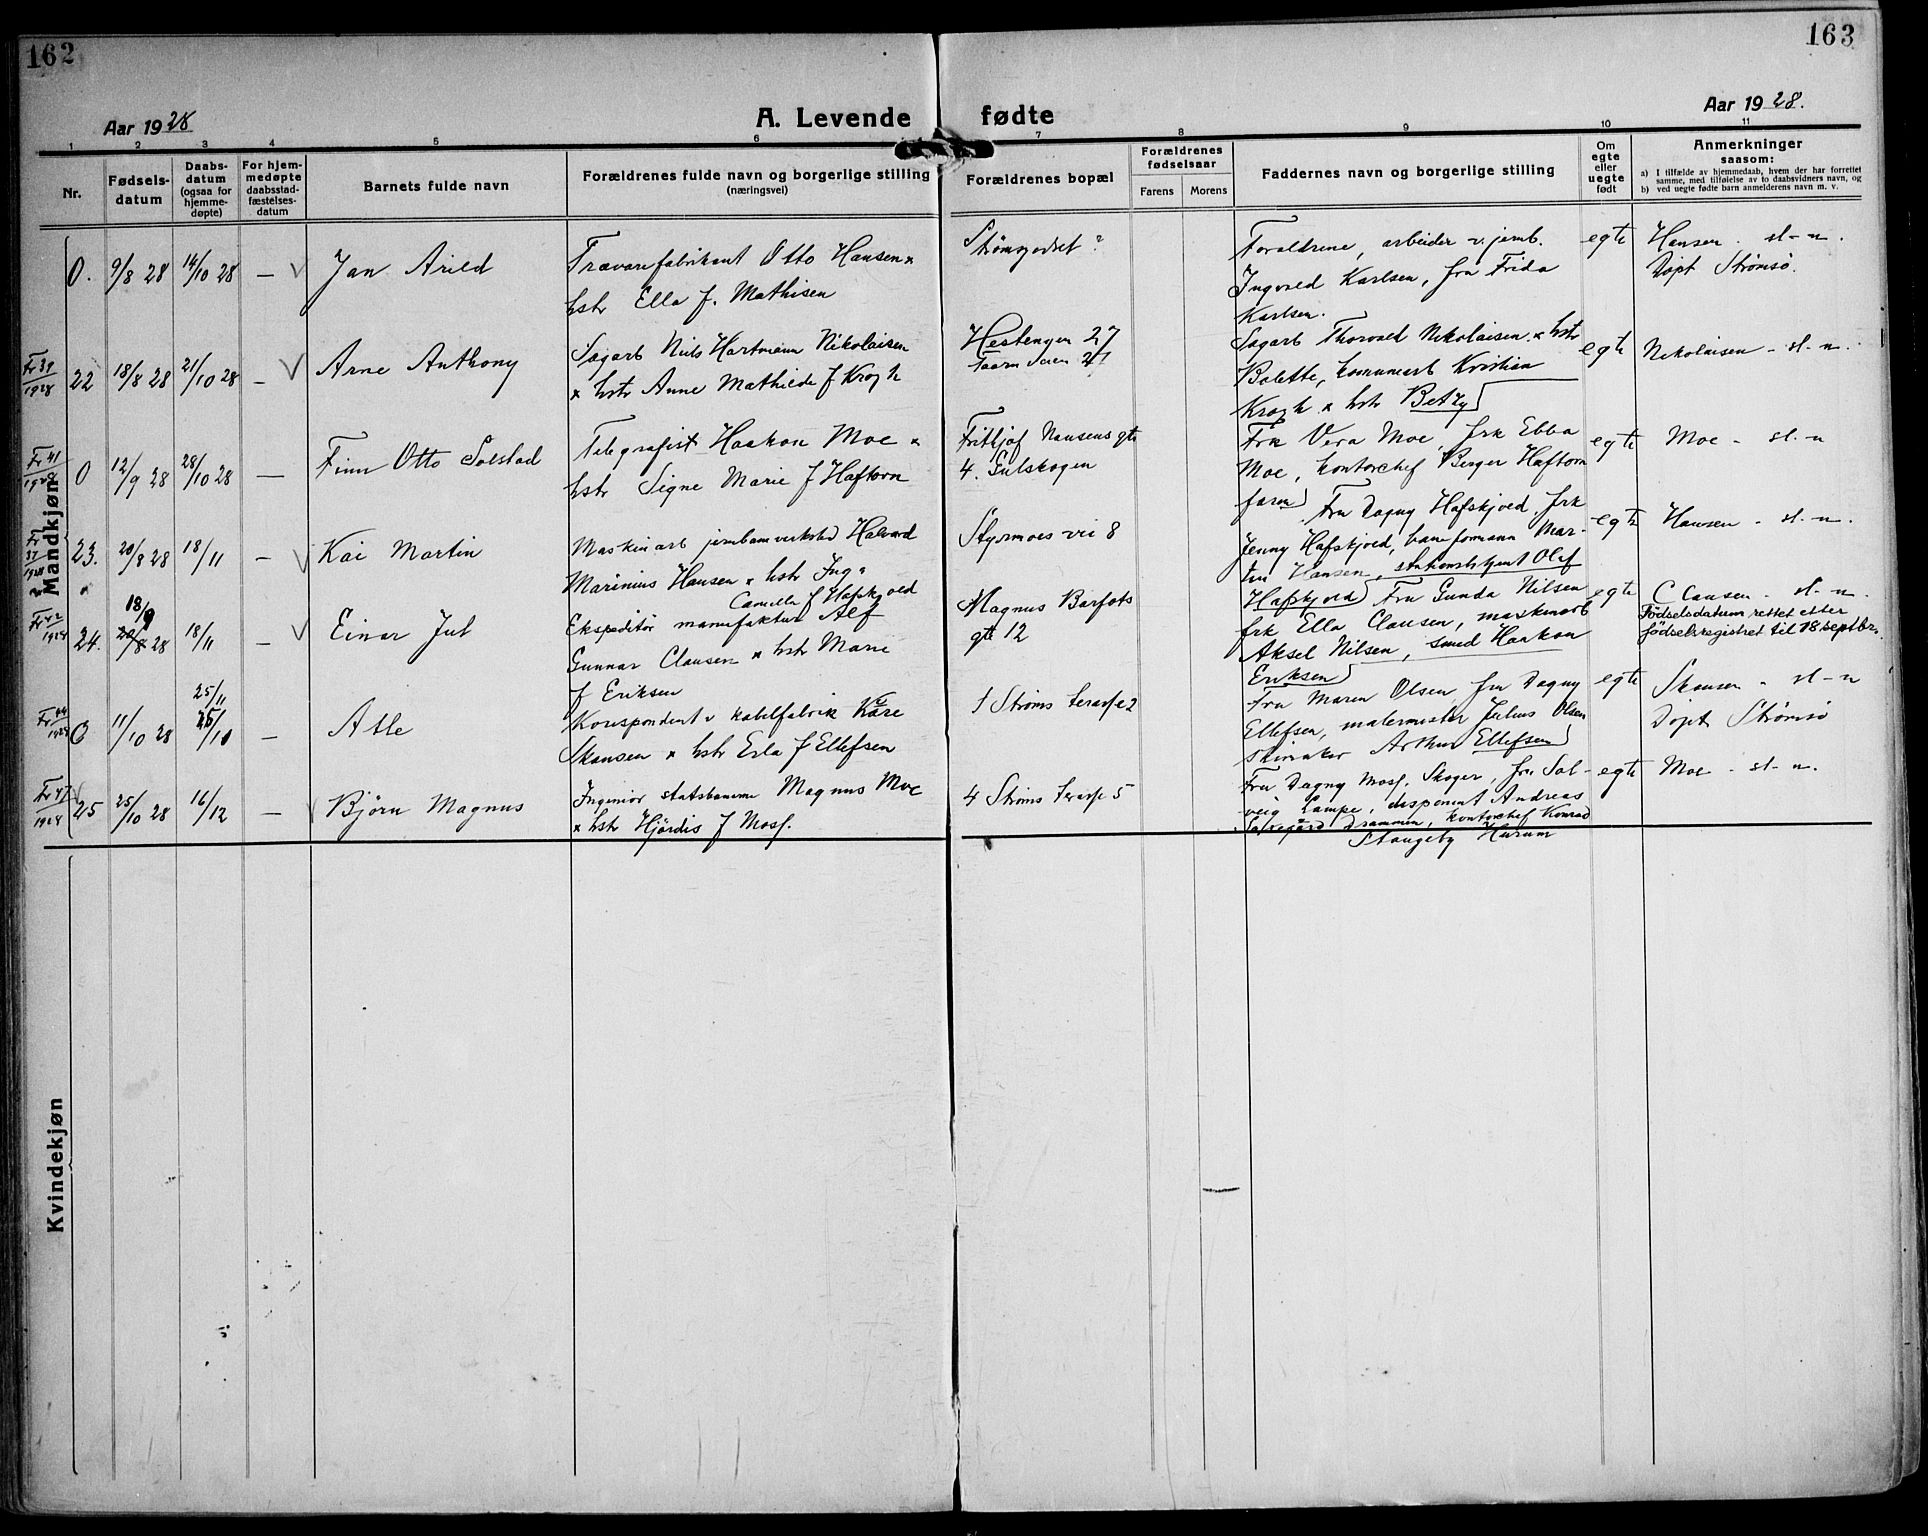 162
163
Aar 1928
A. Levende fødte
Aar 1928.
1 2 3 4 5 6 7 8 9 10 11
Nr.
Fødsels-
datum
Daabs-
datum
(ogsaa for
hjemme-
døpte)
For hjem-
medøpte
daabsstad-
fæstelses-
datum
Barnets fulde navn
Forældrenes fulde navn og borgerlige stilling
(næringsvei)
Forældrenes bopæl
Forældrenes
fødselsaar
Farens Morens
Faddernes navn og borgerlige stilling
Om
egte
eller
uegte
født
Anmerkninger
saasom:
a) I tilfælde av hjemmedaab, hvem der har forrettet
samme, med tilføielse av to daabsvidners navn, og
b) ved uegte fødte barn anmelderens navn m. v.
Mandkjøn
0. 9/8 28 14/10 28 — Jan Arild
Trævarefabrikant Otto Hansen x
hstr Ella f. Mathisen
Strømsgodset ?
Foreldrene, arbeider v. jernb.
Ingvald Karlsen, fru Frida
Karlsen.
egte
Hansen. st-n.
Døpt Strømsø.
Fr 39
1928
22 18/8 28 21/10 28 — Arne Anthony
Sagarb Niels Hartmann Nikolaisen
x hstr Anne Mathilde f Krogh
Hestengen 27
Sagarb Thorvald Nikolaisen x hstr
Bolette, komunearb Kristian
Krogh x hstr Betzy
egte
Nikolaisen - st-n.
Fr 41
1928
0 12/9 28 28/10 28 — Finn Otto Solstad
Telegrafist Haakon Moe x
hstr Signe Marie f Haftorn
Fritjof Nansens gte
4. Gulskogen
Frk Vera Moe, frk Ebba
Moe, kontorchef Berger Haftorn
faren
egte
Moe - st-n
Fr
37
1928
23. 20/8 28 18/11 — Kai Martin
Maskinarb jernbaneverksted Halvard
Marinius Hansen x hstr Ing.
Camilla f Hafskjold
Styrmoes vei 8
Fru Dagny Hafskjold, frk
Jenny Hafskjold, baneformann Mar-
tin Hansen, stationsbetjent Olaf
Hafskjold
egte
Hansen - st-n.
Fr 42
1928
24. 18/9 20/8 28 18/11 — Einar Jul
Ekspeditør manufaktur Alf
Gunnar Clausen x hstr Marie
f Eriksen
Magnus Barfots
gte 12
Fru Gunda Nilsen
frk Ella Clausen, maskinarb
Aksel Nilsen, smed Haakon
Eriksen
egte
Clausen - st-n.
Födselsdatum rettet etter
födselsregistret til 18 septbr.
Fr 44
1928
0 11/10 28 25/11 25/10 — Atle
Korrespondent v kabelfabrik Kåre
Skansen x hstr Erla f Ellefsen
1 Strøms terasse 2
Fru Maren Olsen fru Dagny
Ellefsen, malermester Julius Olsen
Arthur Ellefsen
egte
Skansen - st-n
Döpt Strømsø
Fr 47
1928
25 25/10 28 16/12 — Björn Magnus
Ingeniør statsbanerne Magnus Moe
x hstr Hjördis f Moss.
4 Strøms terasse 5
Fru Dagny Moss. Skoger, fru Sol-
veig Lampe, disponent Andreas
Drammen, kontorchef Konrad
Stangeby Hurum
egte
Moe - st-n.
Kvindekjøn